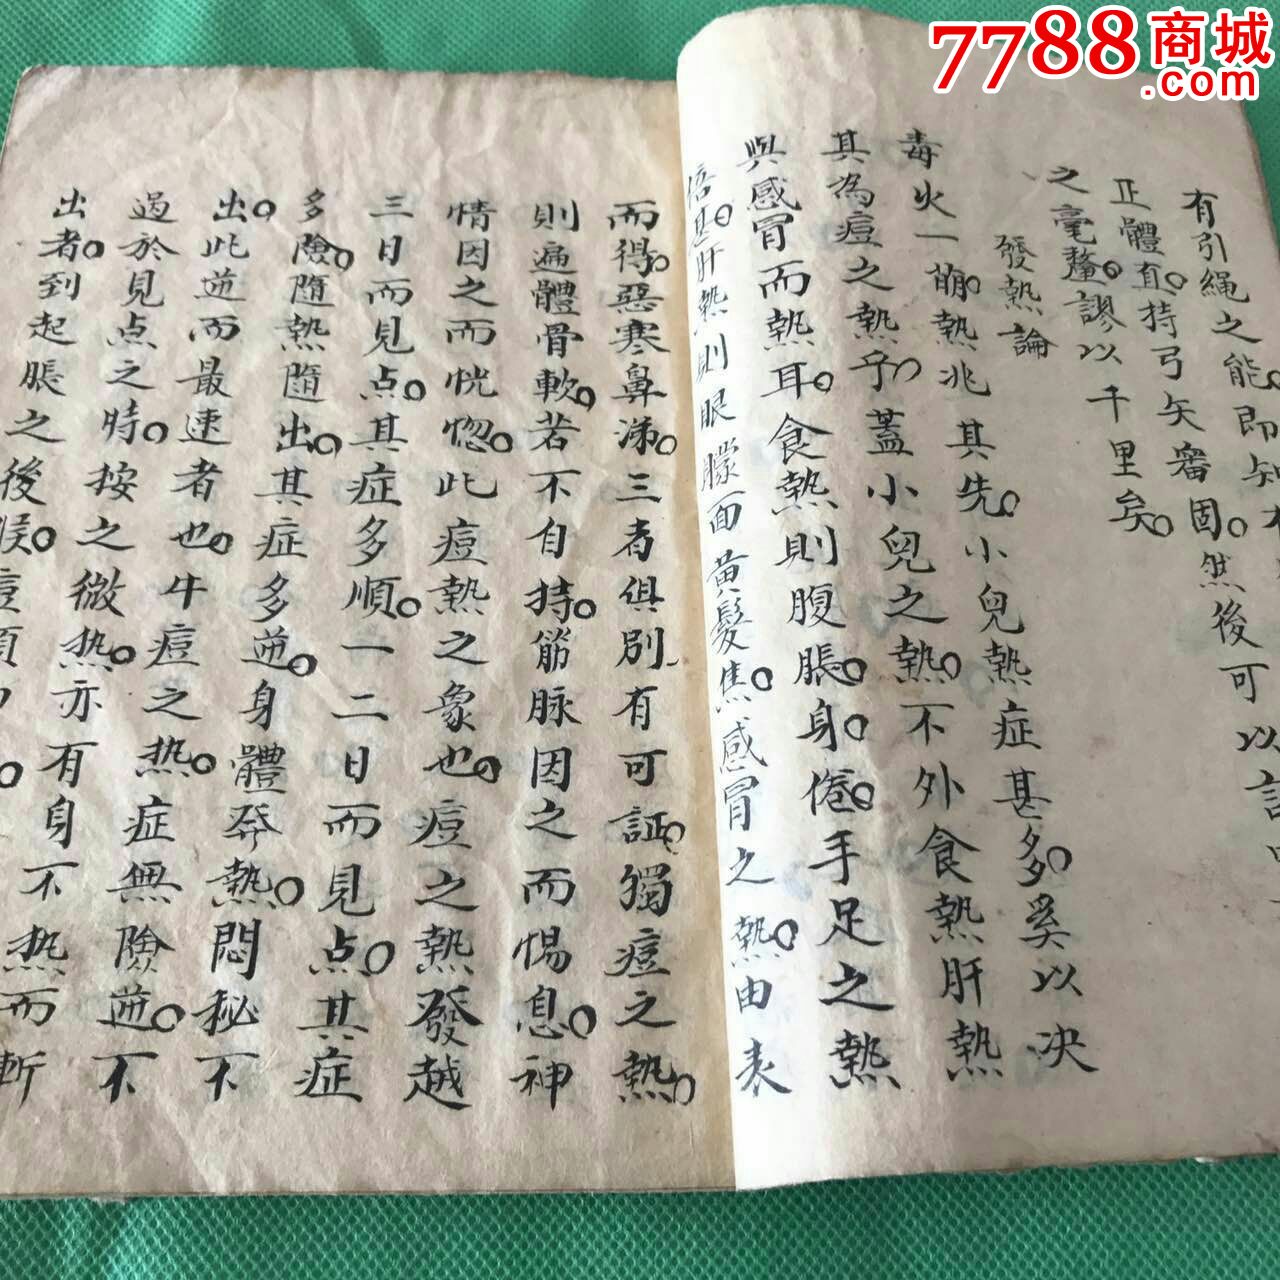 7788商城
.com
有引繩之能即知
正體直持弓矢審固然後可以
之毫釐謬以千里矣
發熱論
毒火一萠熱兆其先小兒熱症甚多奚以决
其為痘之熱乎蓋小兒之熱不外食熱肝熱
與感冒而熱耳食熱則腹脹身倦手足之熱
倍甚肝熱則眼矇面黃髮焦感冒之熱由表
而得惡寒鼻涕三者俱別有可証獨痘之熱
則遍體骨軟若不自持筋脉因之而惕息神
情因之而恍惚此痘熱之象也痘之熱發越
三日而見点其症多順一二日而見点其症
多險隨熱隨出其症多逆身體發熱悶秘不
出此逆而最速者也牛痘之热症無險逆不
過於見点之時按之微热亦有身不热而
出者到起脹之後